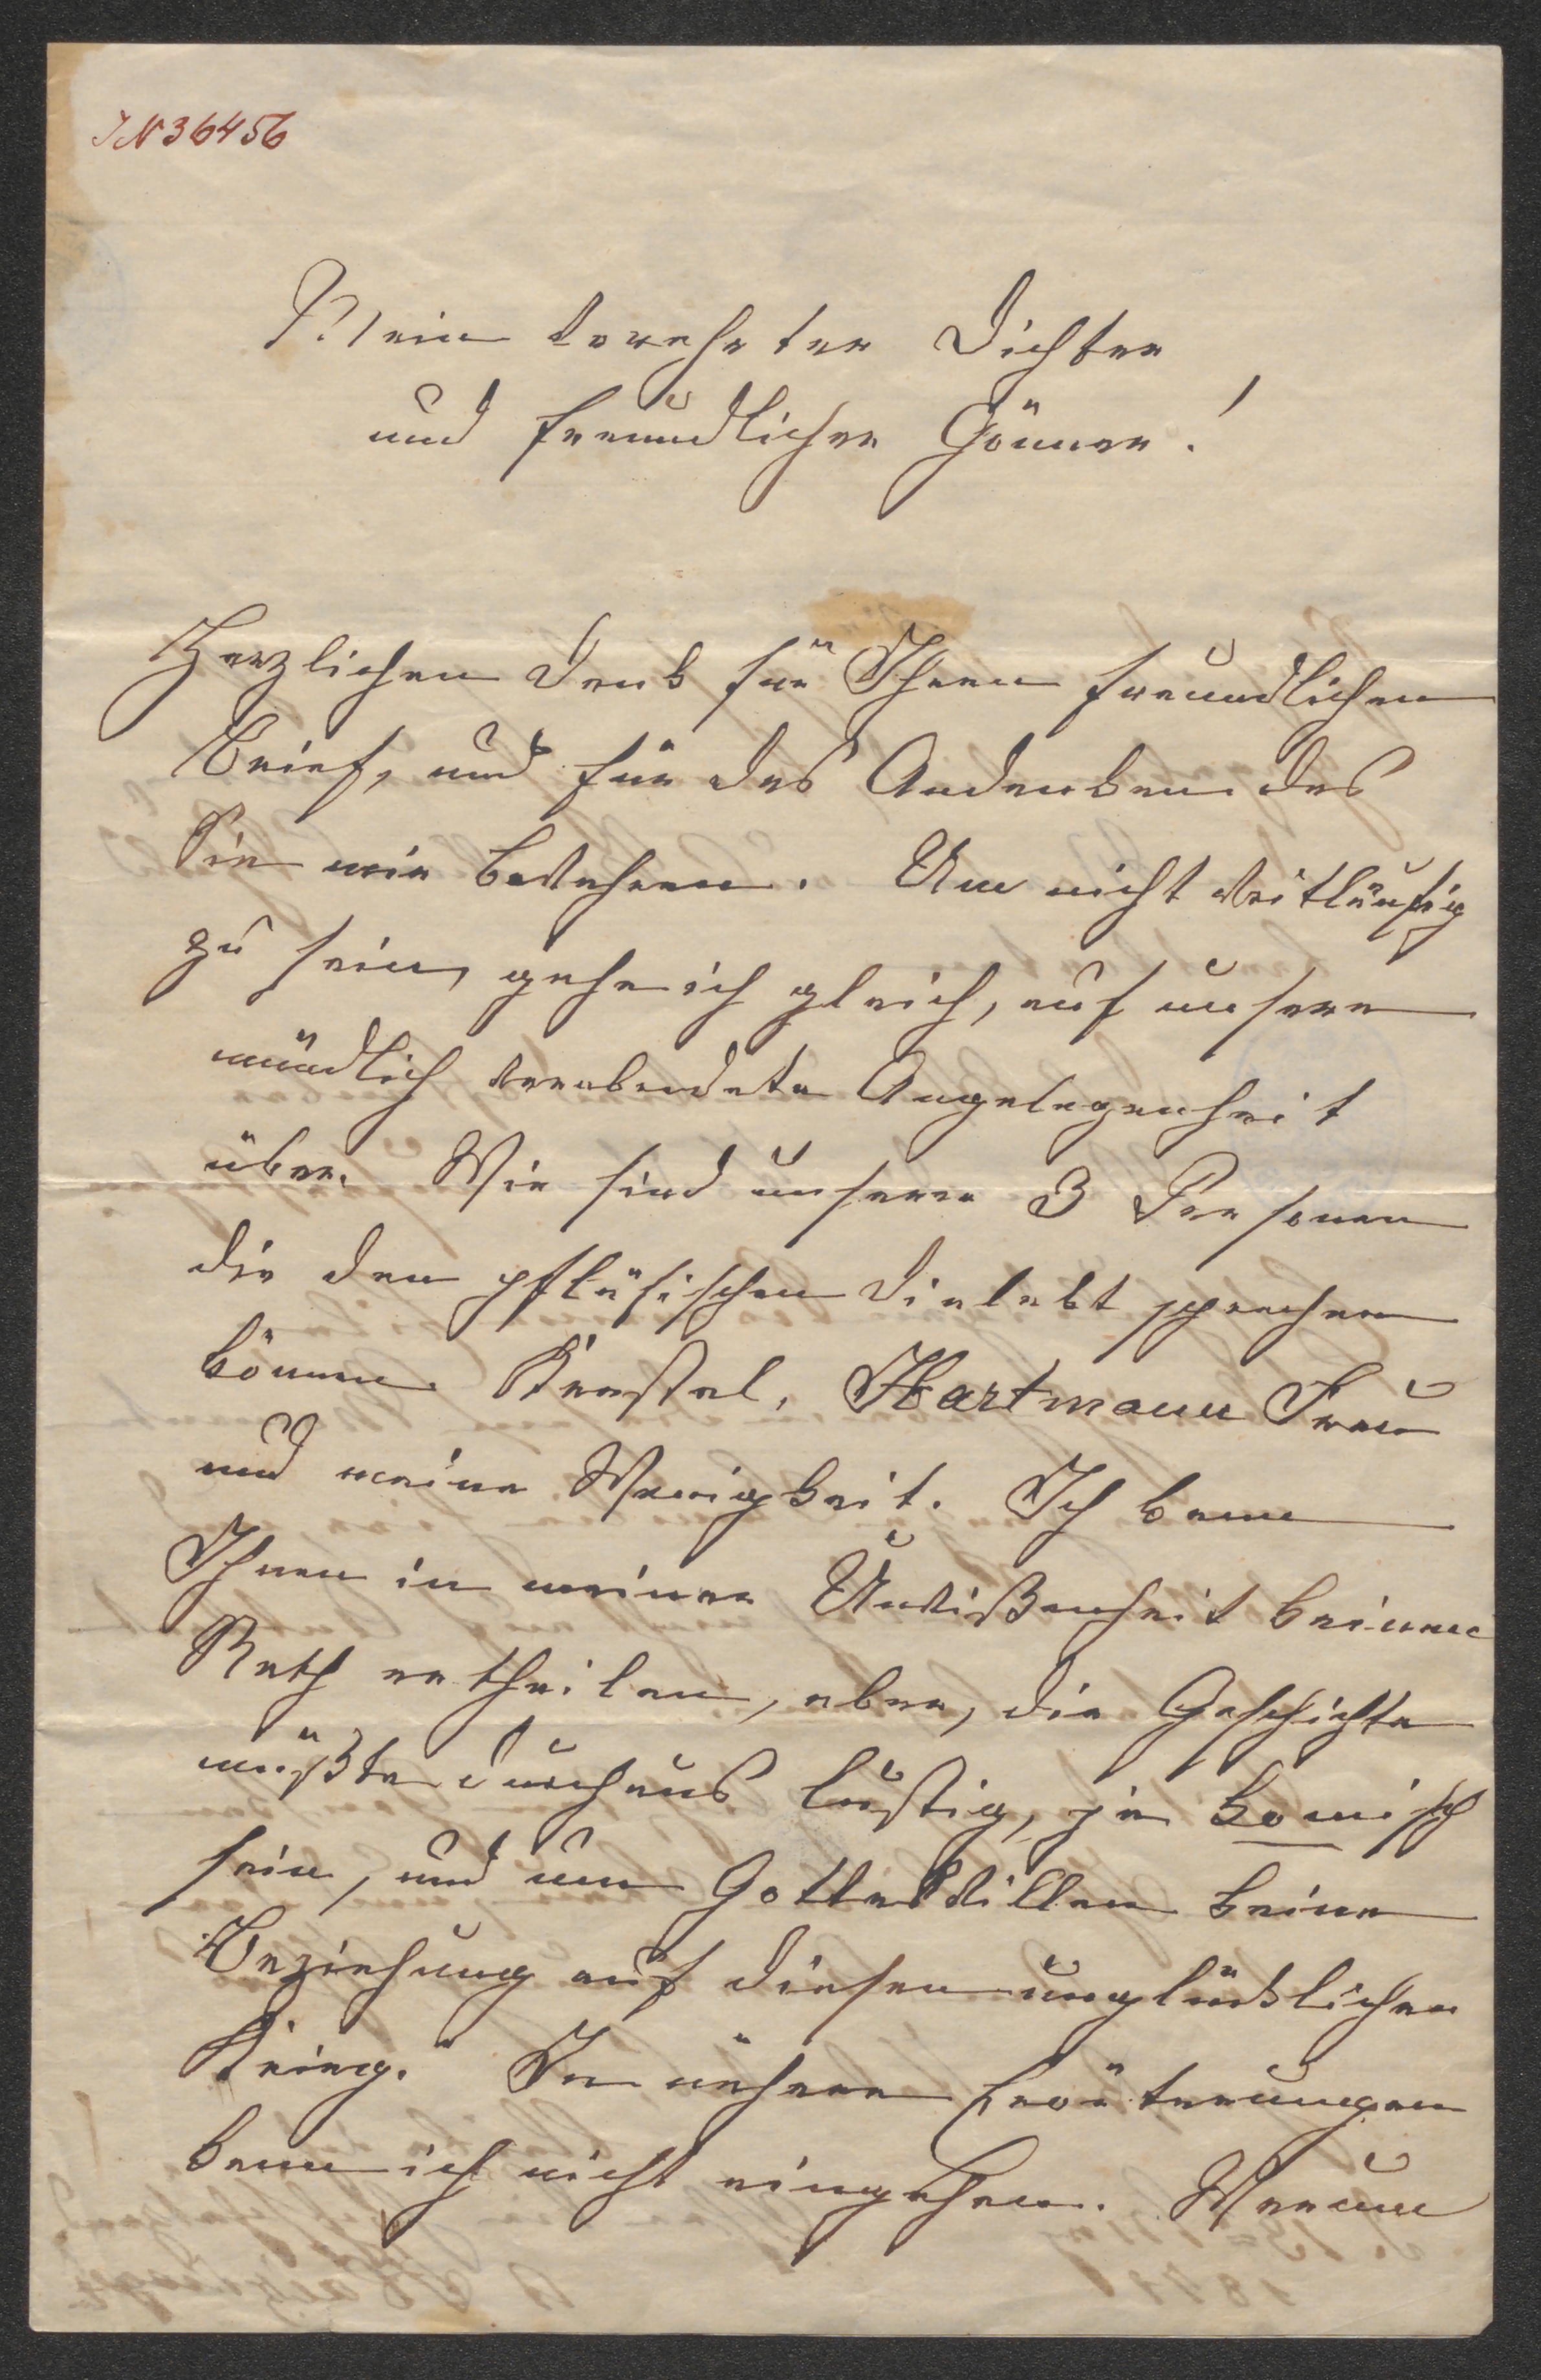 JN 36456
Mein verehrter Dichter
und freundlicher Gönner!
Herzlichen Dank für Ihren freundlichen
Brief, und für das Andenken das
Sie mir bewahren. Um nicht weitläufig
zu sein, gehe ich gleich, auf unsere
mündlich verabredete Angelegenheit
über. Wir sind unserer 3 Personen
die den pfläfischen Dialekt sprechen
können. Krastel, Hartmann Frau
und meine Wenigkeit. Ich kann
Ihnen in meiner Unwißenheit keinen
Rath ertheilen, aber, die Geschichte
müßte durchaus lustig, ja komisch
sein, und um Gotteswillen keine
Beziehung auf diesen unglücklichen
Krieg. In nähere Erörterungen
kann ich nicht eingehen. Warum